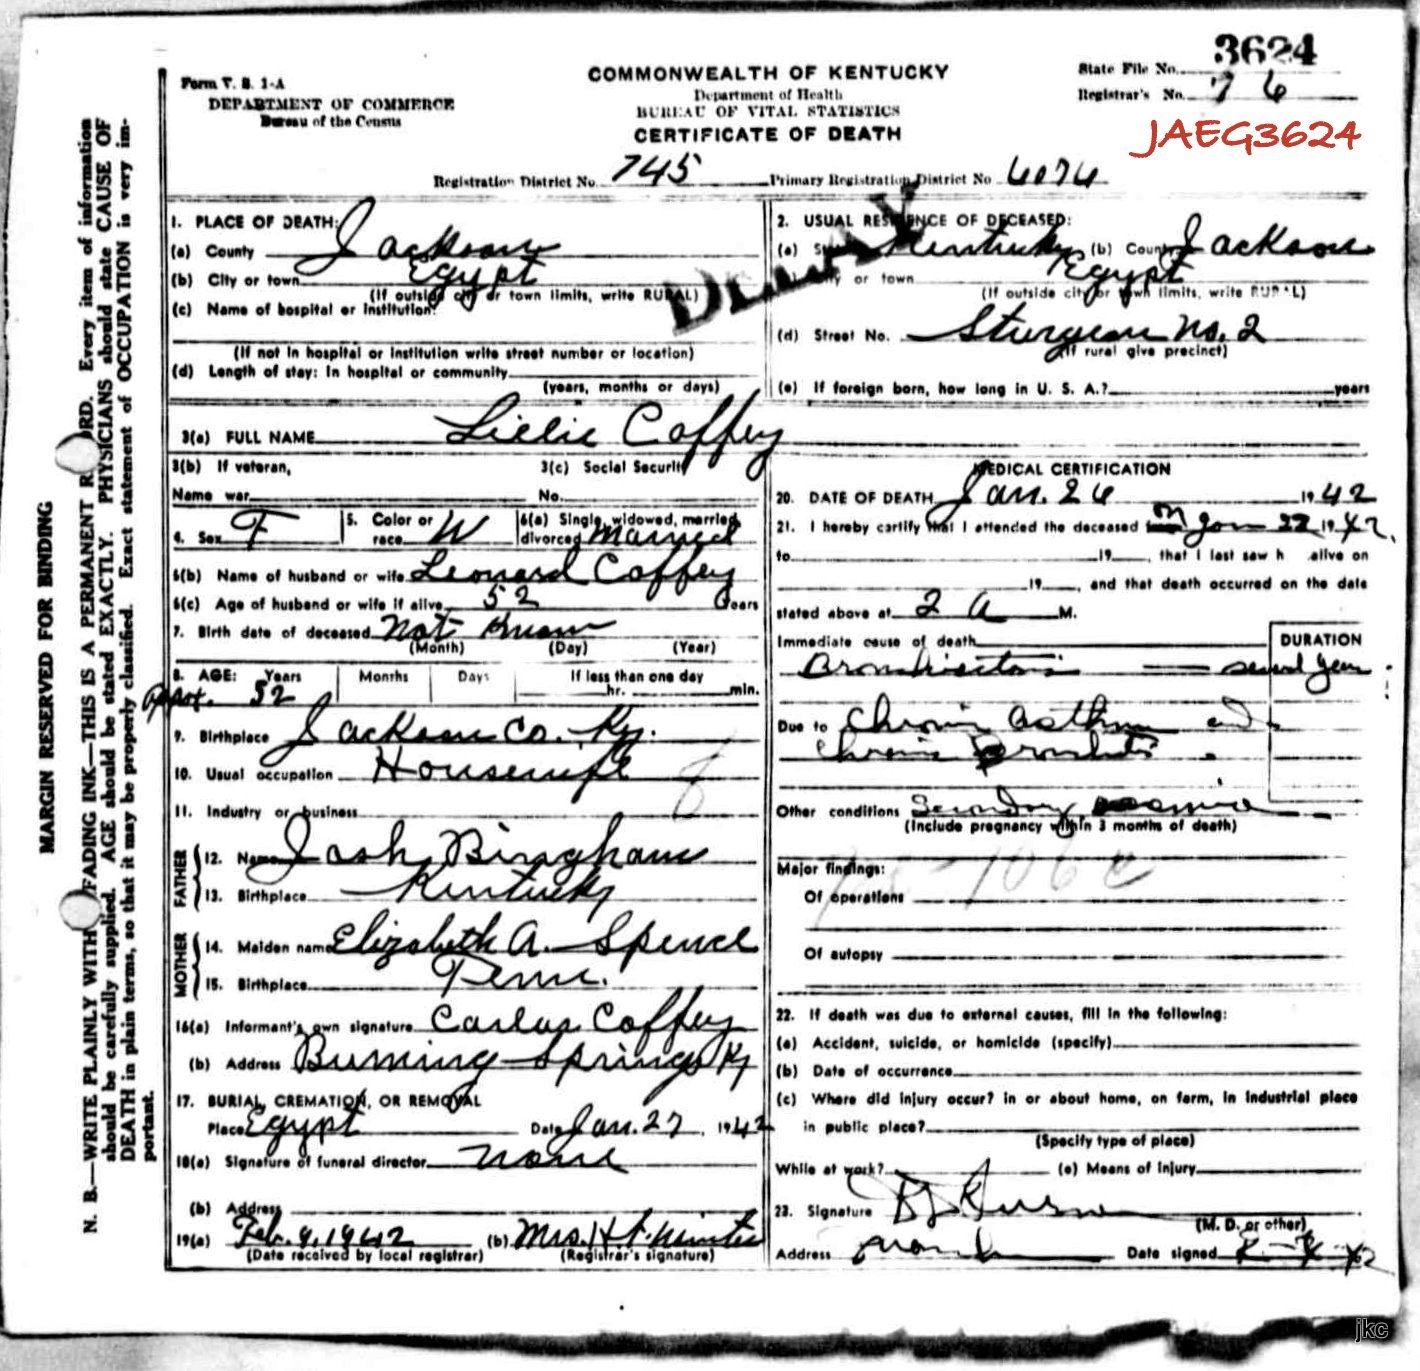 3624
Form V. S. 1-A
DEPARTMENT OF COMMERCE
Bureau of the Census
COMMONWEALTH OF KENTUCKY
Department of Health
BUREAU OF VITAL STATISTICS
CERTIFICATE OF DEATH
State File No.
Registrar's No. 76
JAEG3624
Registration District No. 745 Primary Registration District No 4074
DELAY
1. PLACE OF DEATH:
(a) County Jackson
(b) City or town Egypt
(If outside city or town limits, write RURAL)
(c) Name of hospital or institution:
(If not in hospital or institution write street number or location)
(d) Length of stay: In hospital or community
(years, months or days)
2. USUAL RESIDENCE OF DECEASED:
(a) State Kentucky (b) County Jackson
City or town Egypt
(If outside city or town limits, write RURAL)
(d) Street No. Sturgeon No. 2
(If rural give precinct)
(e) If foreign born, how long in U. S. A.? years
3(a) FULL NAME Lielie Coffey
3(b) If veteran,
Name war
3(c) Social Security
No.
4. Sex F
5. Color or race W
6(a) Single, widowed, married, divorced Married
6(b) Name of husband or wife Leonard Coffey
6(c) Age of husband or wife if alive 52 Years
7. Birth date of deceased Not Known
(Month) (Day) (Year)
8. AGE: Years Months Days If less than one day
appox. 52 hr. min.
9. Birthplace Jackson Co. Ky.
10. Usual occupation Housewife
11. Industry or business
FATHER
12. Name Josh Bingham
13. Birthplace Kentucky
MOTHER
14. Maiden name Elizabeth A. Spence
15. Birthplace Tenn.
16(a) Informant's own signature Carlos Coffey
(b) Address Burning Springs Ky
17. BURIAL, CREMATION, OR REMOVAL
Place Egypt Date Jan. 27, 1942
18(a) Signature of funeral director None
(b) Address
19(a) Feb. 9, 1942 (b) Mrs. H. F. Minter
(Date received by local registrar) (Registrar's signature)
MEDICAL CERTIFICATION
20. DATE OF DEATH Jan. 26 1942
21. I hereby certify that I attended the deceased from on Jan 22 1942.
to 19 , that I last saw h alive on
19 , and that death occurred on the date
stated above at 2 A M.
Immediate cause of death
DURATION
Bronchiectasis several years
Due to Chronic Asthma and
Chronic Bronchitis
Other conditions Secondary anemia
(Include pregnancy within 3 months of death)
106 c
Major findings:
Of operations
Of autopsy
22. If death was due to external causes, fill in the following:
(a) Accident, suicide, or homicide (specify)
(b) Date of occurrence
(c) Where did injury occur? in or about home, on farm, in industrial place
in public place?
(Specify type of place)
While at work? (e) Means of Injury
23. Signature
(M. D. or other)
Address Date signed 2-7-42
MARGIN RESERVED FOR BINDING
N. B.—WRITE PLAINLY WITH FADING INK—THIS IS A PERMANENT RECORD. Every item of information
should be carefully supplied. AGE should be stated EXACTLY. PHYSICIANS should state CAUSE OF
DEATH in plain terms, so that it may be properly classified. Exact statement of OCCUPATION is very im-
portant.
jkc